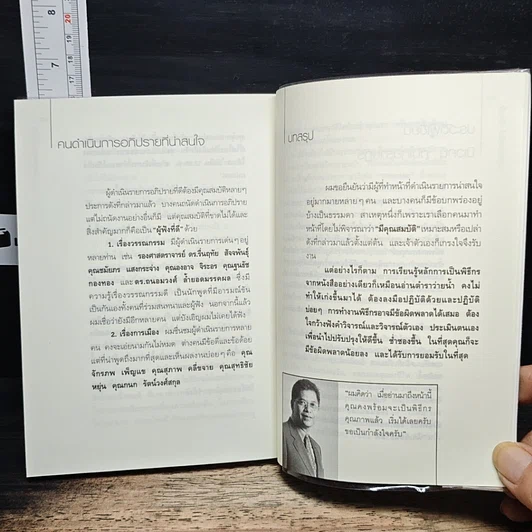 คนดำเนินการอภิปรายที่น่าสนใจ
ผู้ดำเนินรายการอภิปรายที่ดีต้องมีคุณสมบัติหลายๆ
ประการดังที่กล่าวมาแล้ว บางคนถนัดดำเนินการอภิปราย
แต่ไม่ถนัดงานอย่างอื่นก็มี แต่คุณสมบัติที่ขาดไม่ได้และ
สิ่งสำคัญมากก็คือเป็น "ผู้ฟังที่ดี" ด้วย
1. เรื่องวรรณกรรม มีผู้ดำเนินรายการเด่นๆ อยู่
หลายท่าน เช่น รองศาสตราจารย์ ดร.รื่นฤทัย สัจจพันธุ์
คุณชมัยภร แสงกระจ่าง คุณอองอาจ จิระอร คุณฐนธัช
กองทอง และ ดร.ถนอมวงศ์ ล้ำยอดมรรคผล ซึ่งมี
ความรู้เรื่องวรรณกรรมดี เป็นนักพูดที่มีอารมณ์ขัน
เป็นกันเองทั้งคนที่ร่วมสนทนาและผู้ฟัง นอกจากนี้แล้ว
ผมเชื่อว่ายังมีอีกหลายคน แต่บังเอิญผมไม่เคยได้ฟัง
2. เรื่องการเมือง ผมชื่นชมผู้ดำเนินรายการหลาย
คน คงจะเอ่ยนามกันไม่หมด ต่างคนมีข้อดีและข้อด้อย
แต่ที่นำพูดถึงมากที่สุดและเห็นผลงานบ่อยๆ คือ คุณ
จักรภพ เพ็ญแข คุณสุภาพ คลี่ขจาย คุณสุทธิชัย
หยุ่น คุณกนก รัตน์วงศ์สกุล
บทสรุป
ผมขอยืนยันว่ามีผู้ที่ทำหน้าที่ดำเนินรายการน่าสนใจ
อยู่มากมายหลายๆ คน และบางคนก็มีข้อบกพร่องอยู่
บ้างเป็นธรรมดา สาเหตุหนึ่งก็เพราะเราเลือกคนมาทำ
หน้าที่โดยไม่พิจารณาว่า "มีคุณสมบัติ" เหมาะสมหรือเปล่า
ดังที่กล่าวมาแล้วตั้งแต่ต้น และเจ้าตัวเองก็เกรงใจจึงรับ
งาน
แต่อย่างไรก็ตาม การเรียนรู้หลักการเป็นพิธีกร
จากหนังสืออย่างเดียวก็เหมือนอ่านตำราว่ายน้ำ คงไม่
ทำให้เก่งขึ้นมาได้ ต้องลงมือปฏิบัติด้วยและปฏิบัติ
บ่อยๆ การทำงานพิธีกรอาจมีข้อผิดพลาดได้เสมอ ต้อง
ใจกว้างฟังคำวิจารณ์และวิจารณ์ตัวเอง ประเมินตนเอง
เพื่อนำไปปรับปรุงให้ดีขึ้น ช่ำชองขึ้น ในที่สุดคุณก็จะ
มีข้อผิดพลาดน้อยลง และได้รับการยอมรับในที่สุด
"ผมคิดว่า เมื่ออ่านมาถึงหน้านี้
คุณคงพร้อมจะเป็นพิธีกร
คุณภาพแล้ว เริ่มได้เลยครับ
ขอเป็นกำลังใจครับ"
8
20
7